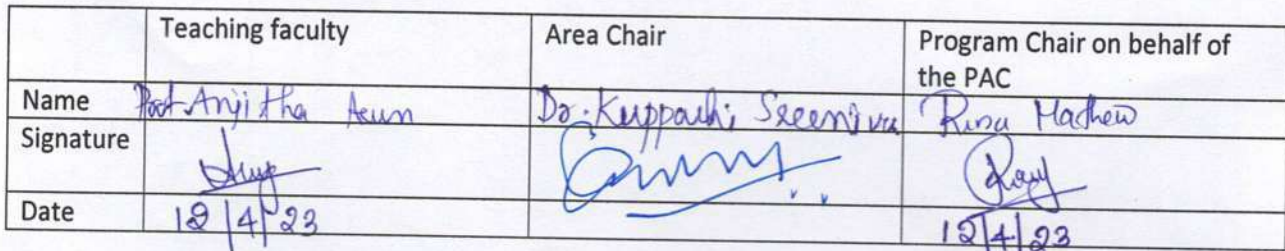 Teaching faculty Area Chair Program Chair on behalf of
the PAC
Name Prof. Anjitha Arun Dr. Kuppachi Sreenivas Rinu Mathew
Signature
Date 12/4/23 12/4/23